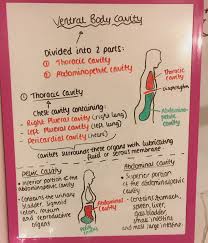 Ventral Body Cavity
Divided into 2 parts:
① Thoracic cavity
② Abdominopelvic cavity
Thoracic cavity
Diaphragm
Abdomino-
pelvic cavity
① Thoracic cavity
Chest cavity containing:
- Right Pleural cavity (right lung)
- Left Pleural cavity (left lung)
- Pericardial cavity (heart)
Cavities surrounds these organs with lubricating
fluid or serous membrane
Pelvic Cavity
• Inferior portion of the
abdominopelvic cavity
• Contains the urinary
bladder, sigmoid
colon, rectum
and reproductive
organs
Abdominal cavity
• Superior portion
of the abdominopelvic
cavity
• Contains stomach,
spleen, liver,
gallbladder,
small intestine
and most large intestine